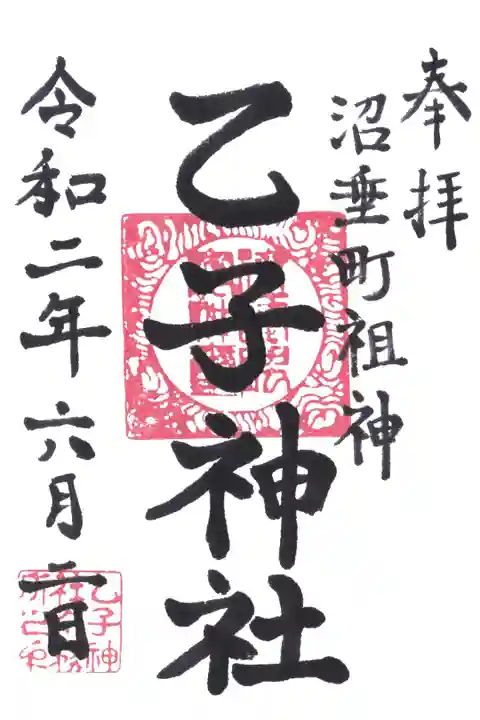 奉拝
沼垂町祖神
乙子神社
令和二年六月二日
乙子神
社務
所之印